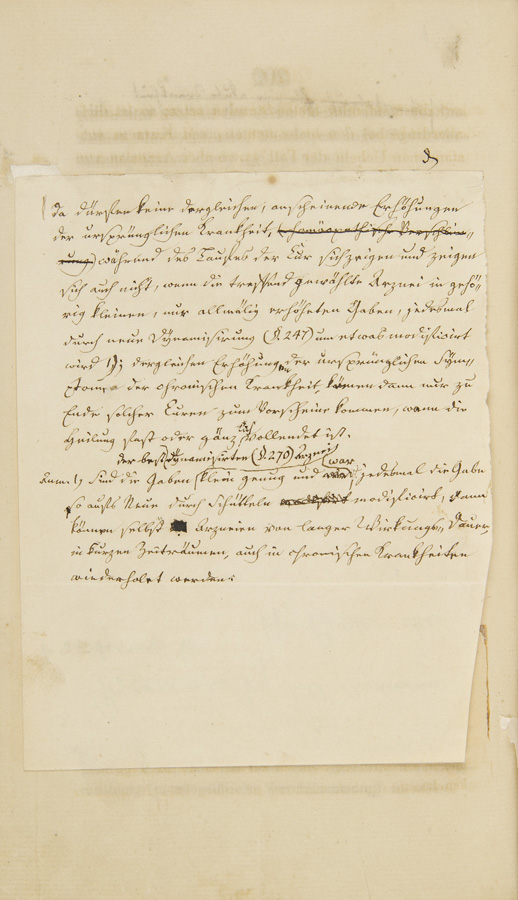 da dürfen keine dergleichen, anscheinende Erhöhungen
der ursprünglichen Krankheit, (homöopathische Verschlim„
rung) während des Laufes der Cur sich zeigen und zeigen
sich auch nicht, wenn die treffend gewählte Arznei in gehö„
rig kleinen, nur allmälig erhöheten Gaben, jedesmal
durch neue Dynamisirung (§. 247) um etwas modificirt
wird 1); dergleichen Erhöhungen der ursprünglichen Sym„
ptome der chronischen Krankheit, können dann nur zu
Ende solcher Curen zum Vorscheine kommen, wann die
Heilung fast oder gänzlich vollendet ist.
der best dynamisirten (§ 270) Arznei
Anm. 1) Sind die Gaben klein genug und war jedesmal die Gabe
so aufs Neue durch Schütteln modificirt, dann
können selbst Arzneien von langer Wirkungs„Dauer,
in kurzen Zeiträumen, auch in chronischen Krankheiten
wiederholet werden.